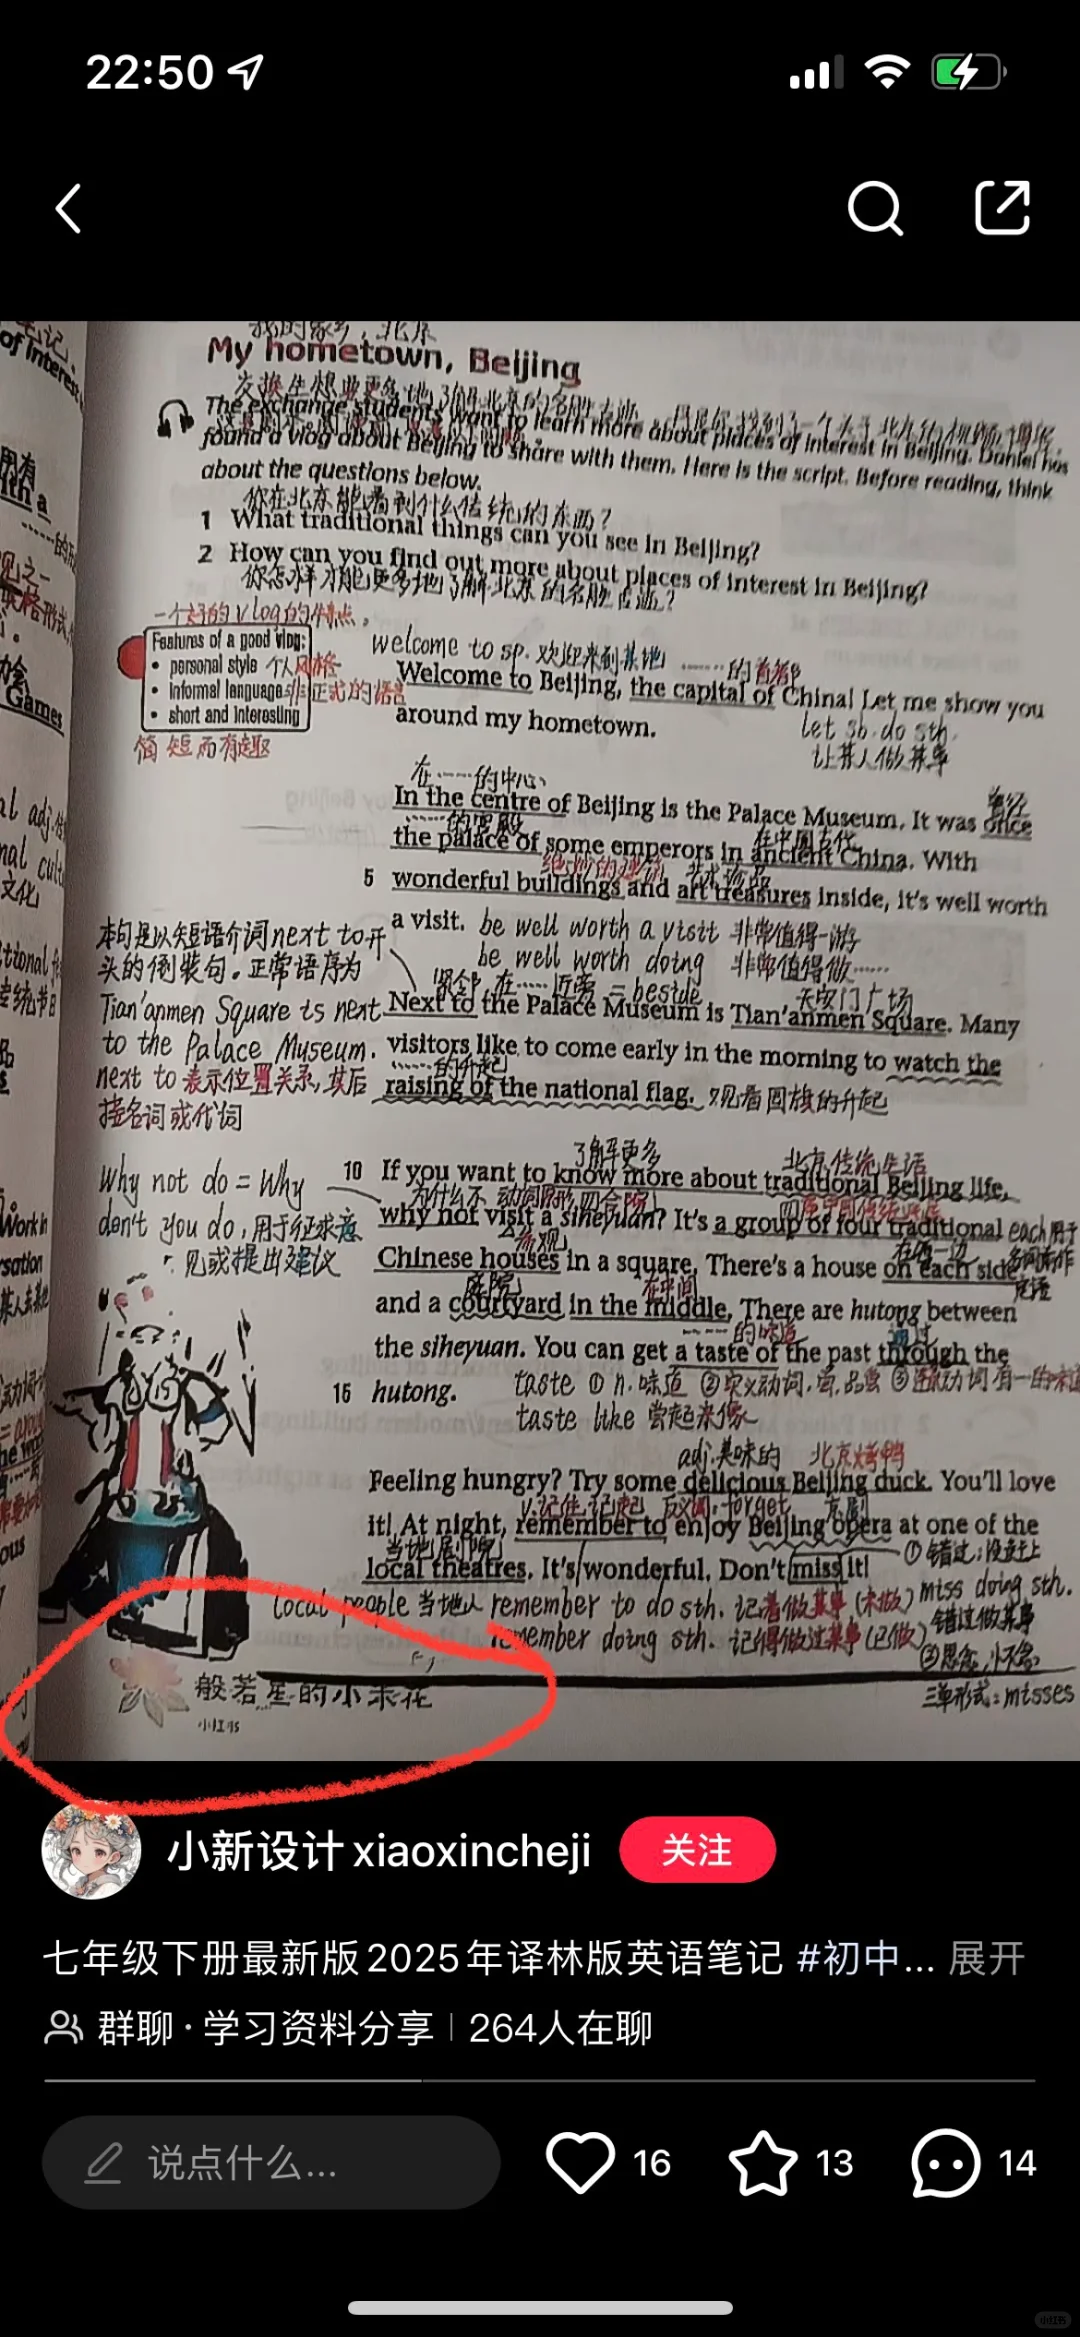 22:50
我的家乡，北京
My hometown, Beijing
交换生想要更多地了解北京的名胜古迹
The exchange students want to learn more about places of interest in Beijing. Daniel has
found a vlog about Beijing to share with them. Here is the script. Before reading, think
about the questions below.
你在北京能看到什么传统的东西？
1 What traditional things can you see in Beijing?
2 How can you find out more about places of interest in Beijing?
你怎样才能更多地了解北京的名胜古迹？
一个好的vlog的特点。
Features of a good vlog:
• personal style 个人风格
• informal language 非正式的语言
• short and interesting
简短而有趣
welcome to sp. 欢迎来到某地 ……的首都
Welcome to Beijing, the capital of China! Let me show you
around my hometown.
let sb. do sth.
让某人做某事
在……的中心
In the centre of Beijing is the Palace Museum. It was once
曾经
……的宫殿 在中国古代
the palace of some emperors in ancient China. With
绝妙的建筑
5 wonderful buildings and art treasures inside, it's well worth
a visit. be well worth a visit 非常值得一游
be well worth doing 非常值得做……
本句是以短语介词next to开
头的倒装句。正常语序为
Tian'anmen Square is next
to the Palace Museum.
next to 表示位置关系,其后
接名词或代词
紧邻 在……近旁 = beside 天安门广场
Next to the Palace Museum is Tian'anmen Square. Many
visitors like to come early in the morning to watch the
……的升起
raising of the national flag. 观看国旗的升起
Why not do = Why
don't you do, 用于征求意
见或提出建议
了解更多 北京传统生活
10 If you want to know more about traditional Beijing life,
why not visit a siheyuan? It's a group of four traditional
参观
each用于
Chinese houses in a square. There's a house on each side
庭院 在中间
and a courtyard in the middle. There are hutong between
……的味道 通过
the siheyuan. You can get a taste of the past through the
15 hutong. taste ① n. 味道 ② 实义动词,尝,品尝 ③
taste like 尝起来像
adj.美味的 北京烤鸭
Feeling hungry? Try some delicious Beijing duck. You'll love
v.记住,记起 反义词:forget 京剧
it! At night, remember to enjoy Beijing opera at one of the
当地剧院
local theatres. It's wonderful. Don't miss it!
①错过;没赶上
miss doing sth.
错过做某事
local people 当地人 remember to do sth. 记着做某事(未做)
remember doing sth. 记得做过某事(已做)
②思念,怀念
三单形式:misses
般若星的小末花
小红书
小新设计xiaoxincheji
关注
七年级下册最新版2025年译林版英语笔记 #初中... 展开
群聊·学习资料分享 | 264人在聊
说点什么...
16
13
14
小红书